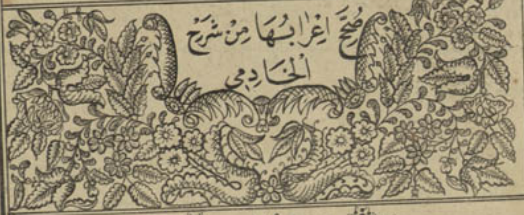 صُحِّحَ اِعْرَابُهَا مِنْ شَرْحِ
الْخَادِمِى